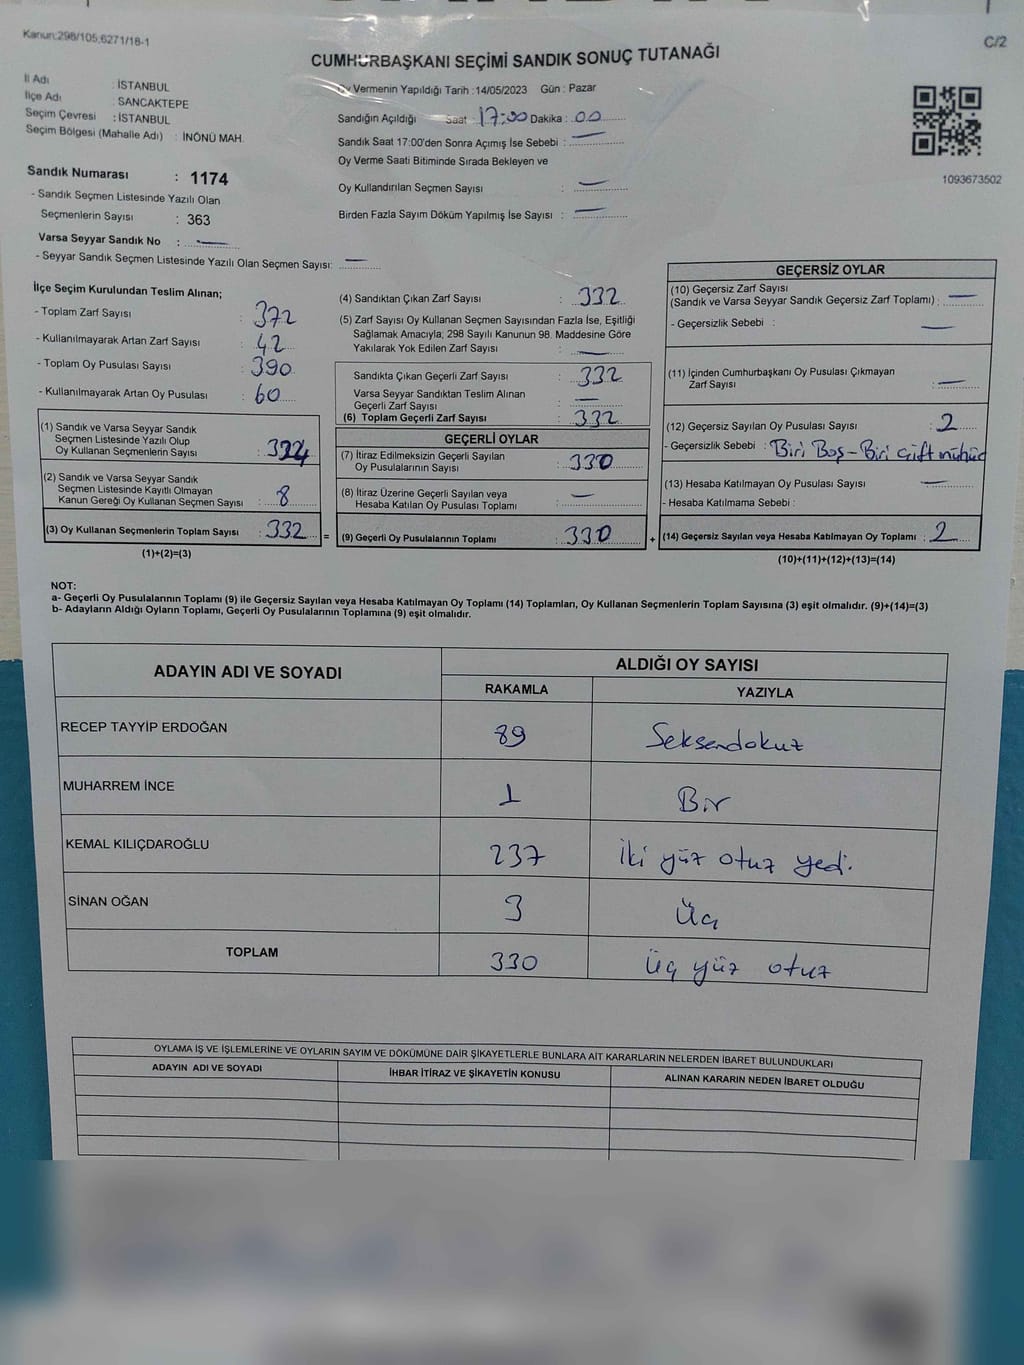 Kanun:298/105,6271/18-1
C/2
CUMHURBAŞKANI SEÇİMİ SANDIK SONUÇ TUTANAĞI
İl Adı : İSTANBUL
İlçe Adı : SANCAKTEPE
Seçim Çevresi : İSTANBUL
Seçim Bölgesi (Mahalle Adı) : İNÖNÜ MAH.
Oy Vermenin Yapıldığı Tarih :14/05/2023 Gün : Pazar
Sandığın Açıldığı Saat : 17:00 Dakika : 00
Sandık Saat 17:00'den Sonra Açımış İse Sebebi : —
Oy Verme Saati Bitiminde Sırada Bekleyen ve
Oy Kullandırılan Seçmen Sayısı : —
Birden Fazla Sayım Döküm Yapılmış İse Sayısı : —
1093673502
Sandık Numarası : 1174
- Sandık Seçmen Listesinde Yazılı Olan
Seçmenlerin Sayısı : 363
Varsa Seyyar Sandık No : —
- Seyyar Sandık Seçmen Listesinde Yazılı Olan Seçmen Sayısı: —
İlçe Seçim Kurulundan Teslim Alınan;
- Toplam Zarf Sayısı : 372
- Kullanılmayarak Artan Zarf Sayısı : 42
- Toplam Oy Pusulası Sayısı : 390
- Kullanılmayarak Artan Oy Pusulası : 60
(1) Sandık ve Varsa Seyyar Sandık
Seçmen Listesinde Yazılı Olup
Oy Kullanan Seçmenlerin Sayısı : 324
(2) Sandık ve Varsa Seyyar Sandık
Seçmen Listesinde Kayıtlı Olmayan
Kanun Gereği Oy Kullanan Seçmen Sayısı : 8
(3) Oy Kullanan Seçmenlerin Toplam Sayısı : 332 =
(1)+(2)=(3)
(4) Sandıktan Çıkan Zarf Sayısı : 332
(5) Zarf Sayısı Oy Kullanan Seçmen Sayısından Fazla İse, Eşitliği
Sağlamak Amacıyla; 298 Sayılı Kanunun 98. Maddesine Göre
Yakılarak Yok Edilen Zarf Sayısı : —
Sandıkta Çıkan Geçerli Zarf Sayısı : 332
Varsa Seyyar Sandıktan Teslim Alınan
Geçerli Zarf Sayısı : —
(6) Toplam Geçerli Zarf Sayısı : 332
GEÇERLİ OYLAR
(7) İtiraz Edilmeksizin Geçerli Sayılan
Oy Pusulalarının Sayısı : 330
(8) İtiraz Üzerine Geçerli Sayılan veya
Hesaba Katılan Oy Pusulası Toplamı : —
(9) Geçerli Oy Pusulalarının Toplamı : 330 +
GEÇERSİZ OYLAR
(10) Geçersiz Zarf Sayısı
(Sandık ve Varsa Seyyar Sandık Geçersiz Zarf Toplamı) : —
- Geçersizlik Sebebi : —
(11) İçinden Cumhurbaşkanı Oy Pusulası Çıkmayan
Zarf Sayısı : —
(12) Geçersiz Sayılan Oy Pusulası Sayısı : 2
- Geçersizlik Sebebi : Biri Boş - Biri Çift mühür
(13) Hesaba Katılmayan Oy Pusulası Sayısı : —
- Hesaba Katılmama Sebebi :
(14) Geçersiz Sayılan veya Hesaba Katılmayan Oy Toplamı : 2
(10)+(11)+(12)+(13)=(14)
NOT:
a- Geçerli Oy Pusulalarının Toplamı (9) ile Geçersiz Sayılan veya Hesaba Katılmayan Oy Toplamı (14) Toplamları, Oy Kullanan Seçmenlerin Toplam Sayısına (3) eşit olmalıdır. (9)+(14)=(3)
b- Adayların Aldığı Oyların Toplamı, Geçerli Oy Pusulalarının Toplamına (9) eşit olmalıdır.
ADAYIN ADI VE SOYADI ALDIĞI OY SAYISI
RAKAMLA YAZIYLA
RECEP TAYYİP ERDOĞAN 89 Seksendokuz
MUHARREM İNCE 1 Bir
KEMAL KILIÇDAROĞLU 237 İki yüz otuz yedi.
SİNAN OĞAN 3 Üç
TOPLAM 330 Üç yüz otuz
OYLAMA İŞ VE İŞLEMLERİNE VE OYLARIN SAYIM VE DÖKÜMÜNE DAİR ŞİKAYETLERLE BUNLARA AİT KARARLARIN NELERDEN İBARET BULUNDUKLARI
ADAYIN ADI VE SOYADI İHBAR İTİRAZ VE ŞİKAYETİN KONUSU ALINAN KARARIN NEDEN İBARET OLDUĞU